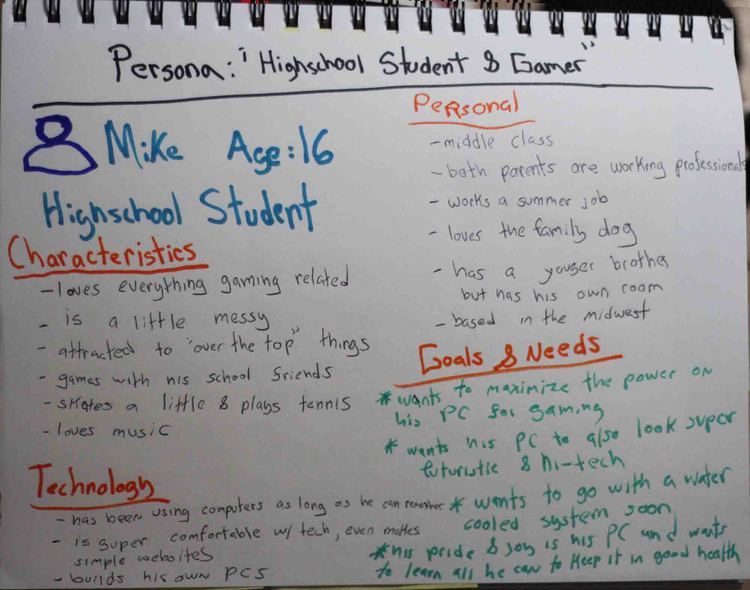 Persona: "Highschool Student & Gamer"
Mike Age: 16
Highschool Student
Characteristics
- loves everything gaming related
- is a little messy
- attracted to "over the top" things
- games with his school friends
- skates a little & plays tennis
- loves music
Technology
- has been using computers as long as he can remember
- is super comfortable w/ tech, even makes
simple websites
- builds his own PCs
Personal
- middle class
- both parents are working professionals
- works a summer job
- loves the family dog
- has a youger brother
but has his own room
- based in the midwest
Goals & Needs
* wants to maximize the power on
his PC for gaming
* wants his PC to also look super
futuristic & hi-tech
* wants to go with a water
cooled system soon
* his pride & joy is his PC and wants
to learn all he can to keep it in good health